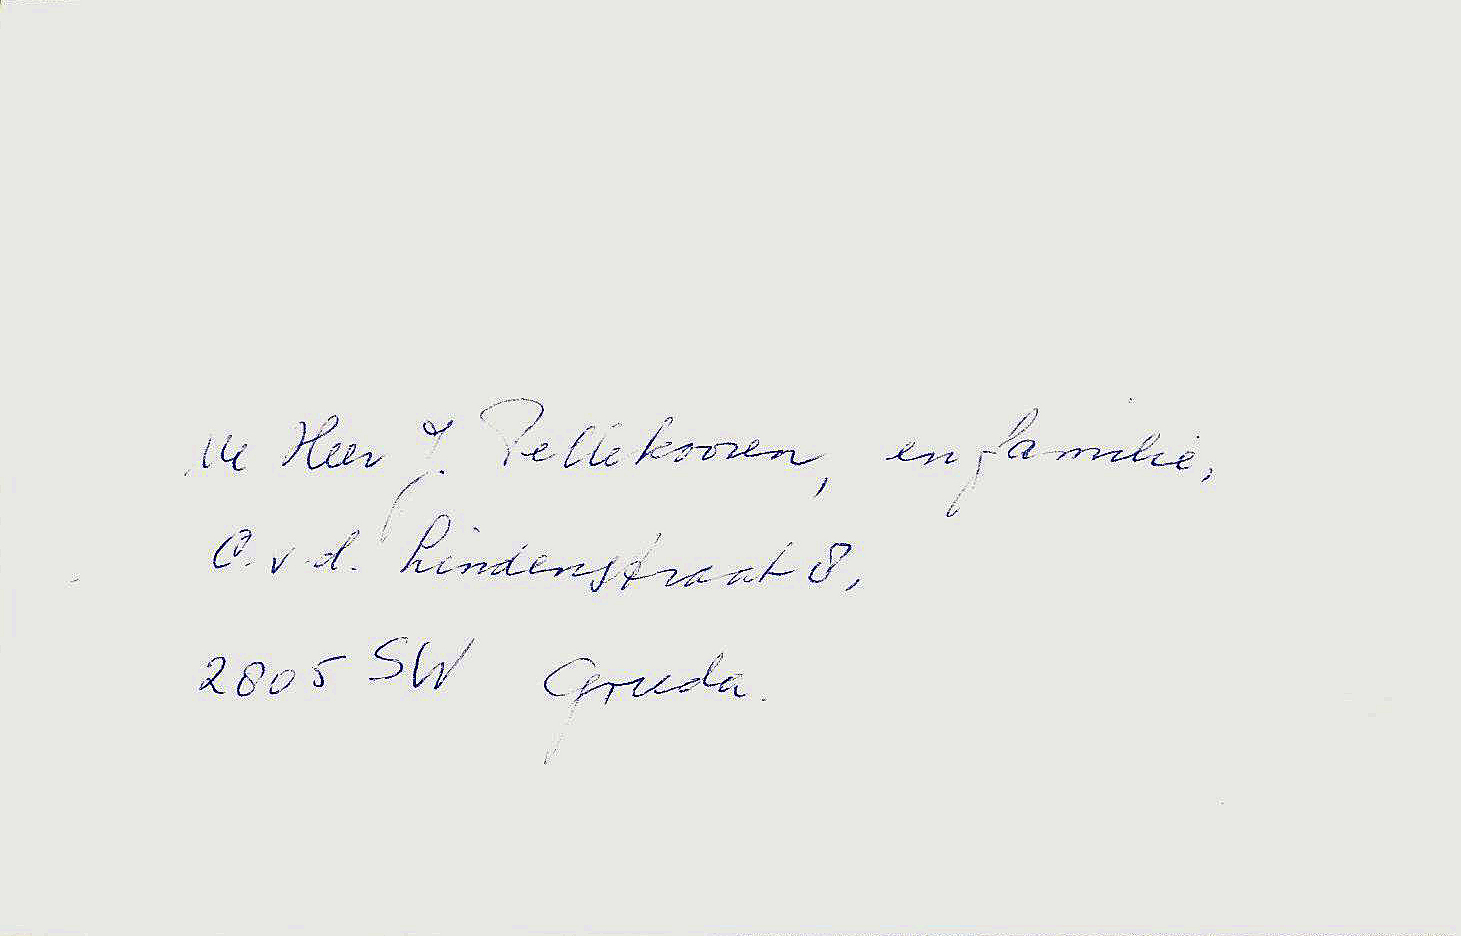 De Heer J. Pellekooren, en familie,
C. v. d. Lindenstraat 8,
2805 SW Gouda.